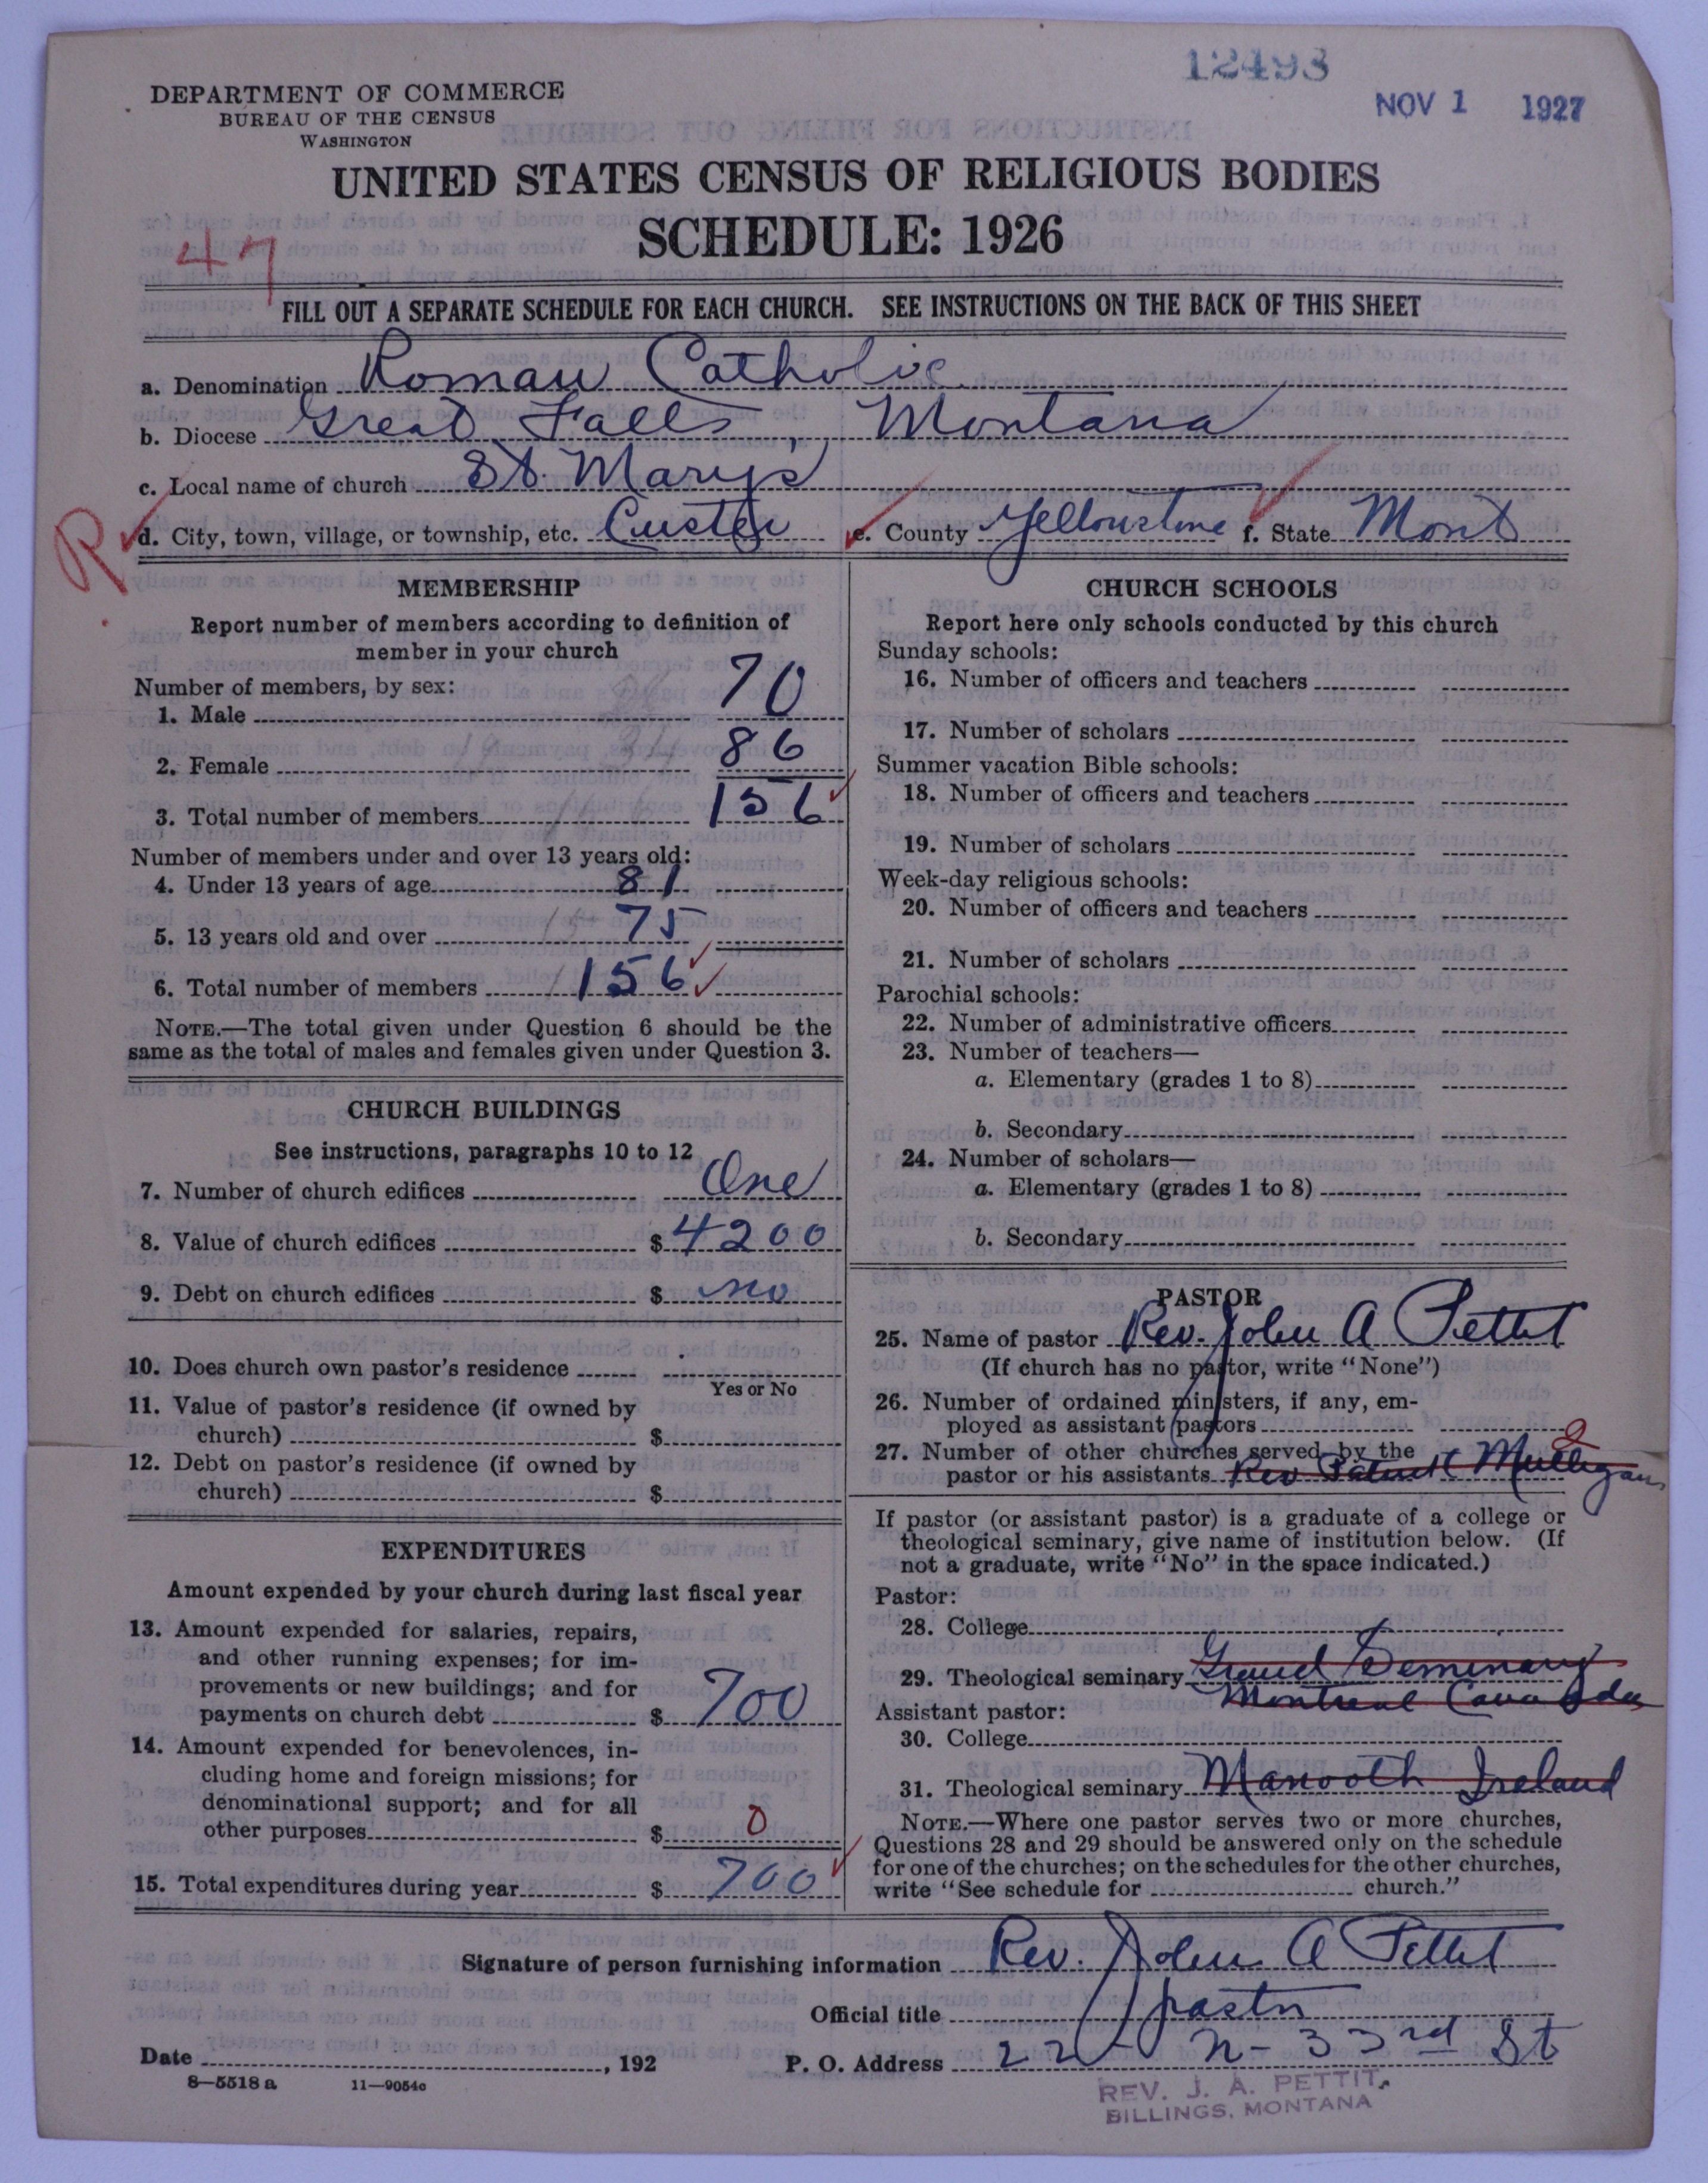 12493
NOV 1 1927
DEPARTMENT OF COMMERCE
BUREAU OF THE CENSUS
WASHINGTON
UNITED STATES CENSUS OF RELIGIOUS BODIES
SCHEDULE: 1926
47
FILL OUT A SEPARATE SCHEDULE FOR EACH CHURCH. SEE INSTRUCTIONS ON THE BACK OF THIS SHEET
a. Denomination Roman Catholic
b. Diocese Great Falls, Montana
c. Local name of church St. Mary's
R d. City, town, village, or township, etc. Custer e. County Yellowstone f. State Mont
MEMBERSHIP
Report number of members according to definition of
member in your church
Number of members, by sex:
1. Male 70
2. Female 86
3. Total number of members 156
Number of members under and over 13 years old:
4. Under 13 years of age 81
5. 13 years old and over 75
6. Total number of members 156
NOTE.—The total given under Question 6 should be the
same as the total of males and females given under Question 3.
CHURCH BUILDINGS
See instructions, paragraphs 10 to 12
7. Number of church edifices One
8. Value of church edifices $ 4200
9. Debt on church edifices $ no
10. Does church own pastor's residence
Yes or No
11. Value of pastor's residence (if owned by
church) $
12. Debt on pastor's residence (if owned by
church) $
EXPENDITURES
Amount expended by your church during last fiscal year
13. Amount expended for salaries, repairs,
and other running expenses; for im-
provements or new buildings; and for
payments on church debt $ 700
14. Amount expended for benevolences, in-
cluding home and foreign missions; for
denominational support; and for all
other purposes $ 0
15. Total expenditures during year $ 700
CHURCH SCHOOLS
Report here only schools conducted by this church
Sunday schools:
16. Number of officers and teachers
17. Number of scholars
Summer vacation Bible schools:
18. Number of officers and teachers
19. Number of scholars
Week-day religious schools:
20. Number of officers and teachers
21. Number of scholars
Parochial schools:
22. Number of administrative officers
23. Number of teachers—
a. Elementary (grades 1 to 8)
b. Secondary
24. Number of scholars—
a. Elementary (grades 1 to 8)
b. Secondary
PASTOR
25. Name of pastor Rev. John A Pettit
(If church has no pastor, write "None")
26. Number of ordained ministers, if any, em-
ployed as assistant pastors
27. Number of other churches served by the 2
pastor or his assistants Rev Patrick Mulligan
If pastor (or assistant pastor) is a graduate of a college or
theological seminary, give name of institution below. (If
not a graduate, write "No" in the space indicated.)
Pastor:
28. College
29. Theological seminary Grand Seminary
Montreal Canada
Assistant pastor:
30. College
31. Theological seminary Manooth Ireland
NOTE.—Where one pastor serves two or more churches,
Questions 28 and 29 should be answered only on the schedule
for one of the churches; on the schedules for the other churches,
write "See schedule for church."
Signature of person furnishing information Rev. John A Pettit
Official title pastor
Date , 192 P. O. Address 22 N- 33rd St
8—5518 a 11—9054c
REV. J. A. PETTIT.
BILLINGS, MONTANA